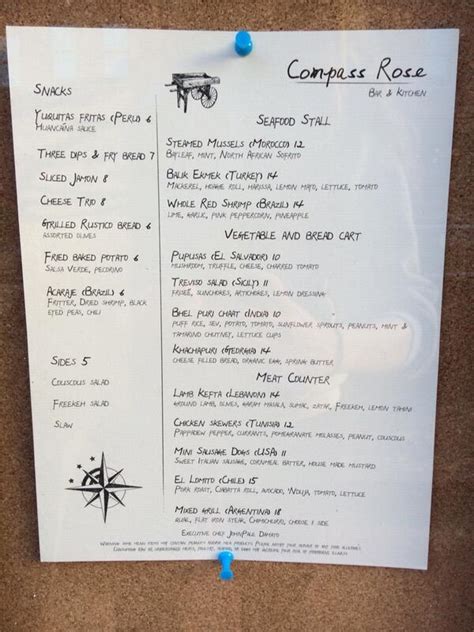 Compass Rose
Bar & Kitchen
Snacks
Yuquitas fritas (Peru) 6
Huancaina sauce
Three dips & fry bread 7
Sliced Jamon 8
Cheese Trio 8
Grilled Rustico bread 6
assorted olives
Fried Baked Potato 6
Salsa Verde, pecorino
Acaraje (Brazil) 6
Fritter, Dried shrimp, black
eyed peas, chili
Sides 5
Couscous salad
Freekeh salad
Slaw
Seafood Stall
Steamed Mussels (Morocco) 12
Bayleaf, mint, North African Sofrito
Balik Ekmek (Turkey) 14
Mackerel, hoagie roll, harissa, lemon mayo, lettuce, tomato
Whole Red Shrimp (Brazil) 14
Lime, garlic, pink peppercorn, pineapple
Vegetable and Bread Cart
Pupusas (El Salvador) 10
Mushroom, truffle, cheese, charred tomato
Treviso salad (Sicily) 11
Friseé, sunchokes, artichokes, lemon dressing
Bhel puri chaat (India) 10
Puff rice, sev, potato, tomato, sunflower sprouts, peanuts, mint &
tamarind chutney, lettuce cups
Khachapuri (Georgia) 14
Cheese filled bread, organic egg, spring butter
Meat Counter
Lamb Kefta (Lebanon) 14
Ground lamb, olives, garam masala, sumac, zatar, Freekeh, lemon tahini
Chicken skewers (Tunisia) 12
Pappadew pepper, currants, pomegranate molasses, peanut, couscous
Mini Sausage Dogs (USA) 11
Sweet Italian sausage, cornmeal batter, house made mustard
El Lomito (Chile) 15
Pork roast, Ciabatta roll, avocado, 'Nduja, tomato, lettuce
Mixed grill (Argentina) 18
flat iron steak, Chimichurri, choose 1 side
Executive chef JohnPaul Damato